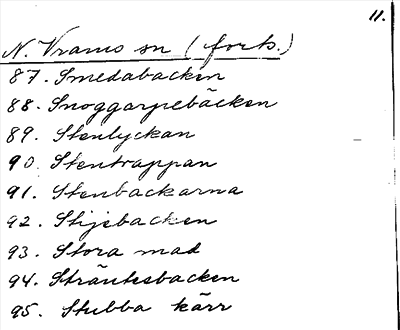 11.
N. Vrams sn (forts.)
87. Smedabacken
88. Snoggarpebäcken
89. Stenlyckan
90. Stentrappan
91. Stenbackarna
92. Stijebacken
93. Stora mad
94. Sträntesbacken
95. Stubba kärr